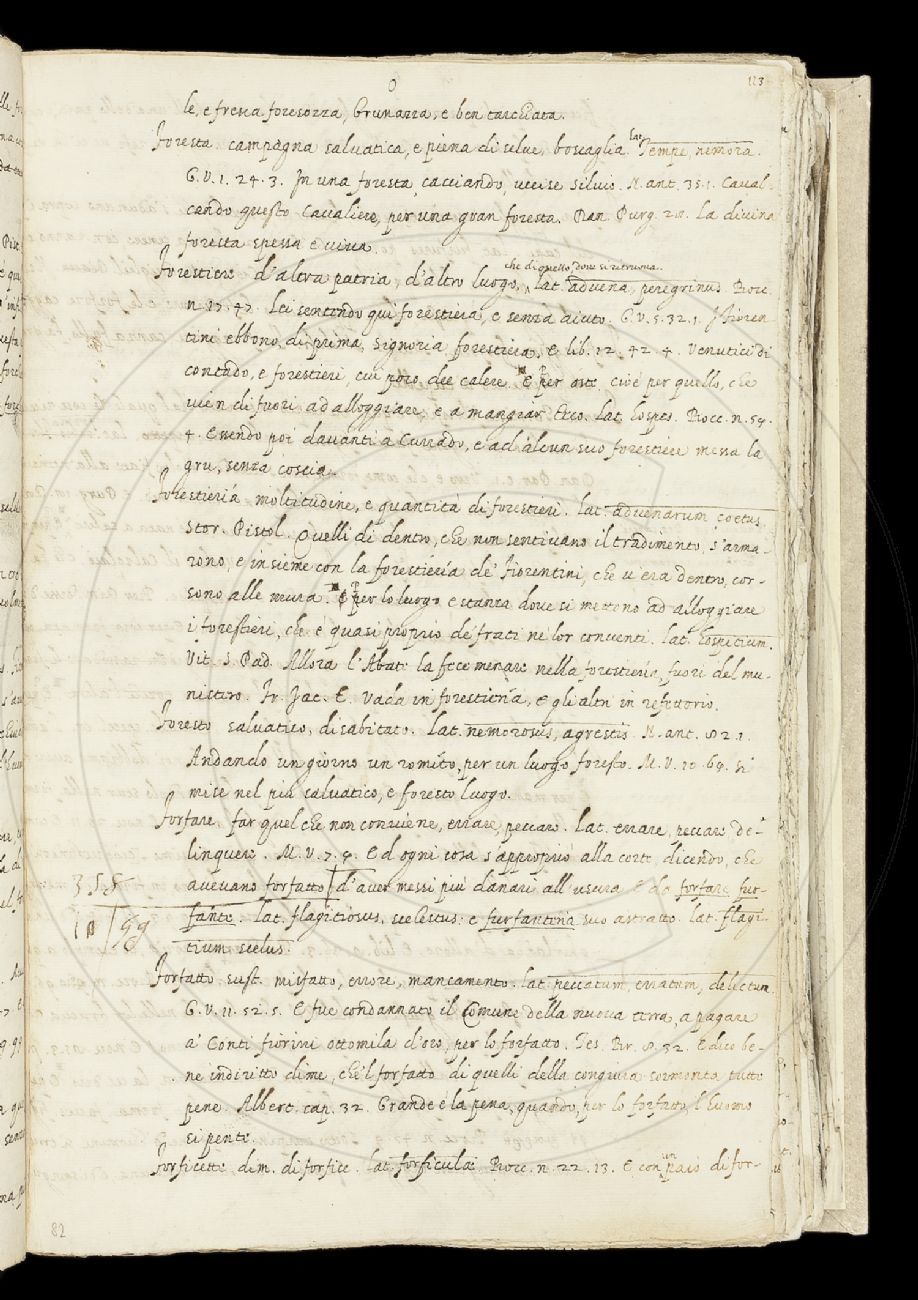 O
113
le, e fresca foresozza, brunazza, e ben tarchiata.
Foresta. campagna salvatica, e piena di selve, boscaglia. Lat. Tempe, nemora.
G.V.1.24.3. In una foresta, cacciando, uccise Silvio. N. ant. 35.1. Caval-
cando questo Cavaliere, per una gran foresta. Dan. Purg. 28. La divina
foresta spessa e viva.
Forestiere d'altra patria, d'altro luogo, che di quello, dove si ritruova. Lat. advena, peregrinus. Bocc.
n. 17.47. Lei sentendo qui forestiera, e senza aiuto. G.V.5.32.1. I Fioren-
tini ebbono, di prima, Signoria forestiera, e lib. 12. 42. 4. Venuticci di
contado, e forestieri, cui poco dee calere. E per oste, cioè per quello, che
vien di fuori ad alloggiare, e a mangiar teco. Lat. hospes. Bocc. n. 54.
4. Essendo poi davanti a Currado, e ad alcun suo forestiere messa la
gru, senza coscia.
Forestieria moltitudine, e quantità di forestieri. Lat. advenarum coetus.
Stor. Pistol. Quelli di dentro, che non sentivano il tradimento, s'arma-
rono, e insieme con la forestieria de' Fiorentini, che v'era dentro, cor-
sono alle mura. E per lo luogo e stanza dove si mettono ad alloggiare
i forestieri, che è quasi proprio de' frati ne' lor conventi. Lat. hospitium.
Vit. S. Pad. Allora l'Abate la fece menare nella forestieria, fuori del mu-
nistero. Fr. Jac. T. Vada in forestieria, e gli altri in refettorio.
Foresto salvatico, disabitato. Lat. nemorosus, agrestis. N. ant. 82.1.
Andando un giorno un romito, per un luogo foresto. M.V. 10. 69. Si
mise nel più salvatico, e foresto luogo.
Forfare, far quel che non conviene, errare, peccare. Lat. errare, peccare de-
linquere. M.V. 7. 9. E d'ogni cosa s'appropiò alla corte, dicendo, che
avevano forfatto d'aver messi più danari all'usura E da forfare fur-
fante. lat. flagitiosus, scelestus: e furfanteria suo astratto. lat. flagi-
tium scelus.
Forfatto sust. misfatto, errore, mancamento. Lat. peccatum, erratum, delictum.
G.V. 11. 52. 5. E fue condannato il Comune della nuova terra, a pagare
a' Conti fiorini ottomila d'oro, per lo forfatto. Tes. Br. 8. 32. E dico be-
ne indiritto di me, che 'l forfatto di quelli della congiura sormonta tutte
pene. Albert. cap. 32. Grande è la pena, quando, per lo forfatto, l'huomo
si pente.
Forficette dim. di forfice. Lat. forficulae. Bocc. n. 22. 13. E con un paio di for-
82